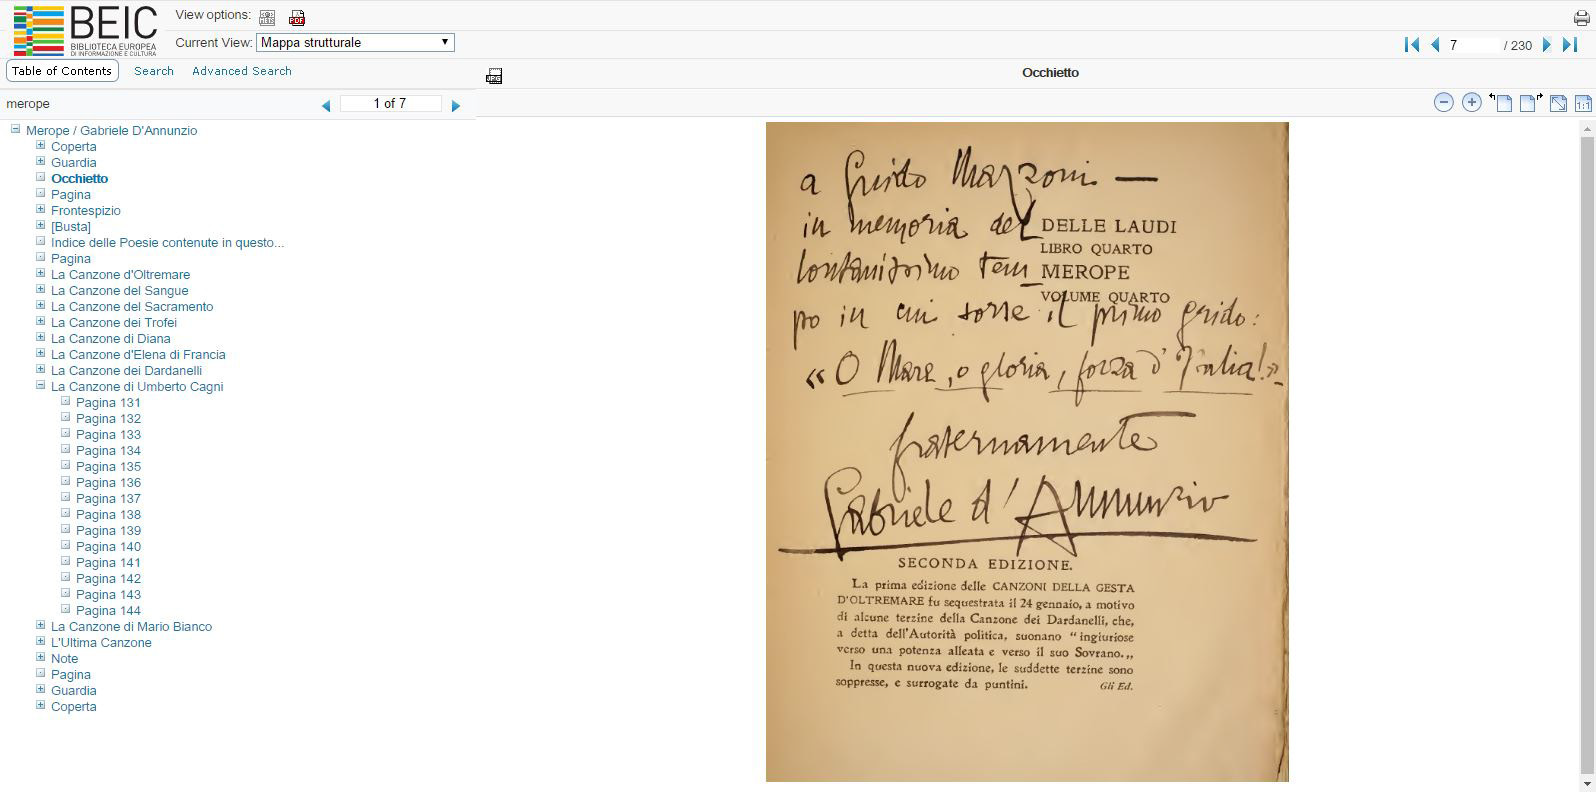 BEIC
BIBLIOTECA EUROPEA
DI INFORMAZIONE E CULTURA
View options:
PDF
Current View: Mappa strutturale
7 / 230
Table of Contents Search Advanced Search
Occhietto
merope
1 of 7
1:1
Merope / Gabriele D'Annunzio
Coperta
Guardia
Occhietto
Pagina
Frontespizio
[Busta]
Indice delle Poesie contenute in questo...
Pagina
La Canzone d'Oltremare
La Canzone del Sangue
La Canzone del Sacramento
La Canzone dei Trofei
La Canzone di Diana
La Canzone d'Elena di Francia
La Canzone dei Dardanelli
La Canzone di Umberto Cagni
Pagina 131
Pagina 132
Pagina 133
Pagina 134
Pagina 135
Pagina 136
Pagina 137
Pagina 138
Pagina 139
Pagina 140
Pagina 141
Pagina 142
Pagina 143
Pagina 144
La Canzone di Mario Bianco
L'Ultima Canzone
Note
Pagina
Guardia
Coperta
a Guido Mazzoni —
in memoria del
lontanissimo tem
po in cui sorse il primo grido:
« O Mare, o gloria, forza d'Italia! »
fraternamente
Gabriele d'Annunzio
DELLE LAUDI
LIBRO QUARTO
MEROPE
VOLUME QUARTO
SECONDA EDIZIONE.
La prima edizione delle CANZONI DELLA GESTA
D'OLTREMARE fu sequestrata il 24 gennaio, a motivo
di alcune terzine della Canzone dei Dardanelli, che,
a detta dell'Autorità politica, suonano "ingiuriose
verso una potenza alleata e verso il suo Sovrano.„
In questa nuova edizione, le suddette terzine sono
soppresse, e surrogate da puntini. Gli Ed.